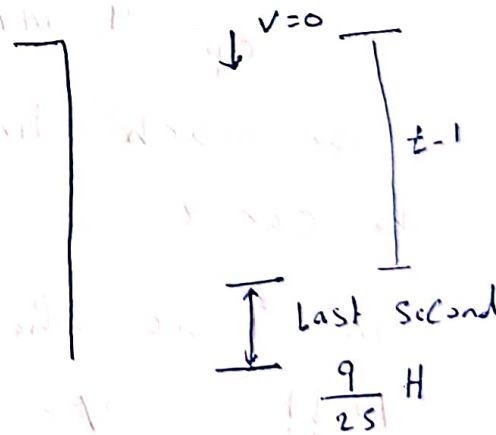 V=0
t-1
Last second
9/25 H